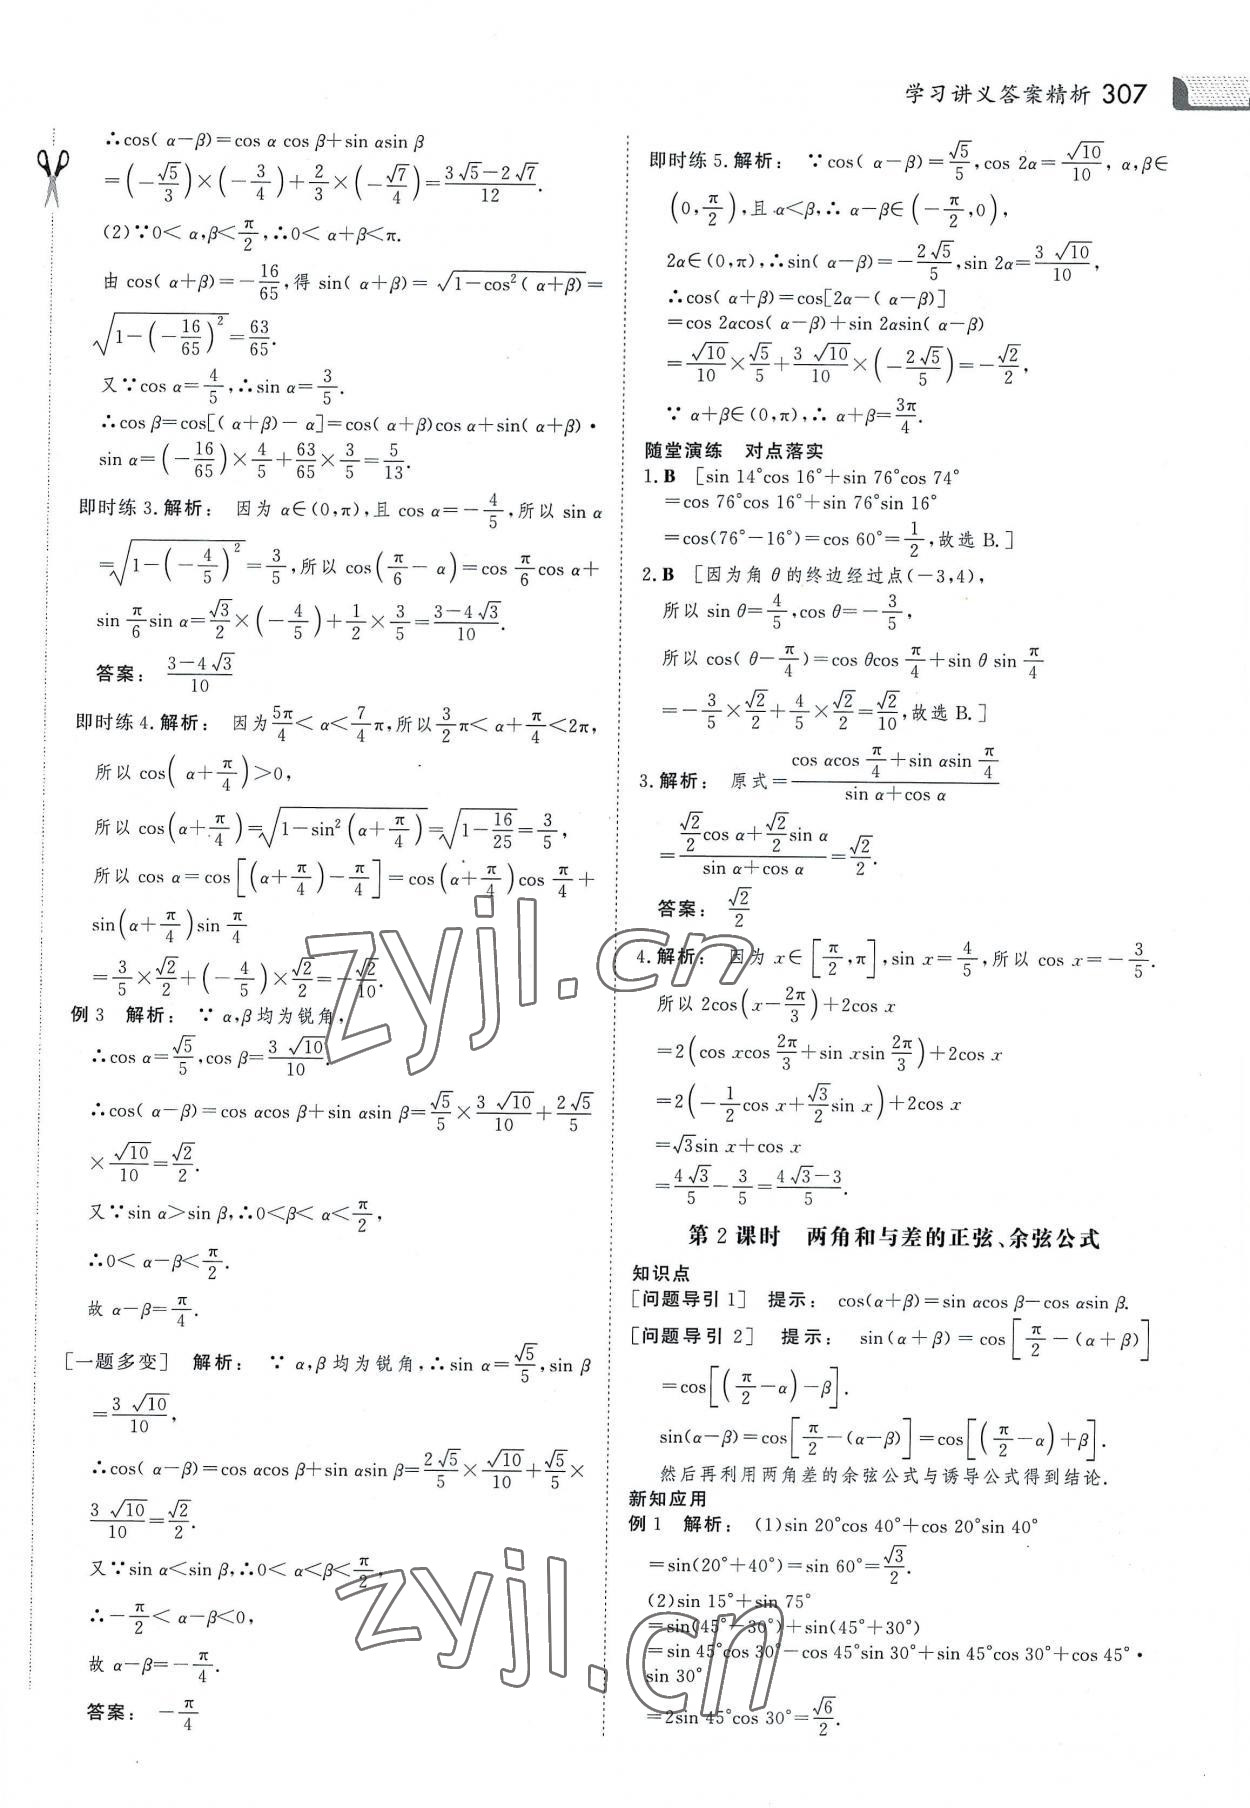 学习讲义答案精析 307
∴cos( α−β)=cos α cos β+sin αsin β
=(−√5/3)×(−3/4)+2/3×(−√7/4)=(3√5−2√7)/12.
(2)∵0< α,β<π/2,∴0< α+β<π.
由 cos( α+β)=−16/65,得 sin( α+β)=√(1−cos²( α+β))=
√(1−(−16/65)²)=63/65.
又∵cos α=4/5,∴sin α=3/5.
∴cos β=cos[( α+β)− α]=cos( α+β)cos α+sin( α+β)·
sin α=(−16/65)×4/5+63/65×3/5=5/13.
即时练 3.解析: 因为 α∈(0,π),且 cos α=−4/5,所以 sin α
=√(1−(−4/5)²)=3/5,所以 cos(π/6− α)=cos π/6 cos α+
sin π/6 sin α=√3/2×(−4/5)+1/2×3/5=(3−4√3)/10.
答案: (3−4√3)/10
即时练 4.解析: 因为5π/4< α<7/4π,所以3/2π< α+π/4<2π,
所以 cos( α+π/4)>0,
所以 cos(α+π/4)=√(1−sin²(α+π/4))=√(1−16/25)=3/5,
所以 cos α=cos[(α+π/4)−π/4]=cos(α+π/4)cos π/4+
sin(α+π/4)sin π/4
=3/5×√2/2+(−4/5)×√2/2=−√2/10.
例 3 解析: ∵ α,β均为锐角,
∴cos α=√5/5,cos β=3√10/10.
∴cos( α−β)=cos αcos β+sin αsin β=√5/5×3√10/10+2√5/5
×√10/10=√2/2.
又∵sin α>sin β,∴0<β< α<π/2,
∴0< α−β<π/2.
故 α−β=π/4.
[一题多变] 解析: ∵ α,β均为锐角,∴sin α=√5/5,sin β
=3√10/10,
∴cos( α−β)=cos αcos β+sin αsin β=2√5/5×√10/10+√5/5×
3√10/10=√2/2.
又∵sin α<sin β,∴0< α<β<π/2,
∴−π/2< α−β<0,
故 α−β=−π/4.
答案: −π/4
即时练 5.解析: ∵cos( α−β)=√5/5,cos 2α=√10/10, α,β∈
(0,π/2),且 α<β,∴ α−β∈(−π/2,0),
2α∈(0,π),∴sin( α−β)=−2√5/5,sin 2α=3√10/10,
∴cos( α+β)=cos[2α−( α−β)]
=cos 2αcos( α−β)+sin 2αsin( α−β)
=√10/10×√5/5+3√10/10×(−2√5/5)=−√2/2,
∵ α+β∈(0,π),∴ α+β=3π/4.
随堂演练 对点落实
1. B [sin 14°cos 16°+sin 76°cos 74°
=cos 76°cos 16°+sin 76°sin 16°
=cos(76°−16°)=cos 60°=1/2,故选 B.]
2. B [因为角 θ 的终边经过点(−3,4),
所以 sin θ=4/5,cos θ=−3/5,
所以 cos( θ−π/4)=cos θcos π/4+sin θ sin π/4
=−3/5×√2/2+4/5×√2/2=√2/10,故选 B.]
3.解析: 原式=(cos αcos π/4+sin αsin π/4)/(sin α+cos α)
=(√2/2 cos α+√2/2 sin α)/(sin α+cos α)=√2/2.
答案: √2/2
4.解析: 因为 x∈[π/2,π],sin x=4/5,所以 cos x=−3/5.
所以 2cos(x−2π/3)+2cos x
=2(cos xcos 2π/3+sin xsin 2π/3)+2cos x
=2(−1/2 cos x+√3/2 sin x)+2cos x
=√3sin x+cos x
=4√3/5−3/5=(4√3−3)/5.
第 2 课时 两角和与差的正弦、余弦公式
知识点
[问题导引 1] 提示: cos(α+β)=sin αcos β−cos αsin β.
[问题导引 2] 提示: sin(α+β)=cos[π/2−(α+β)]
=cos[(π/2−α)−β].
sin(α−β)=cos[π/2−(α−β)]=cos[(π/2−α)+β].
然后再利用两角差的余弦公式与诱导公式得到结论.
新知应用
例 1 解析: (1)sin 20°cos 40°+cos 20°sin 40°
=sin(20°+40°)=sin 60°=√3/2.
(2)sin 15°+sin 75°
=sin(45°−30°)+sin(45°+30°)
=sin 45°cos 30°−cos 45°sin 30°+sin 45°cos 30°+cos 45°·
sin 30°
=2sin 45°cos 30°=√6/2.
zyjl.cn
zyjl.cn